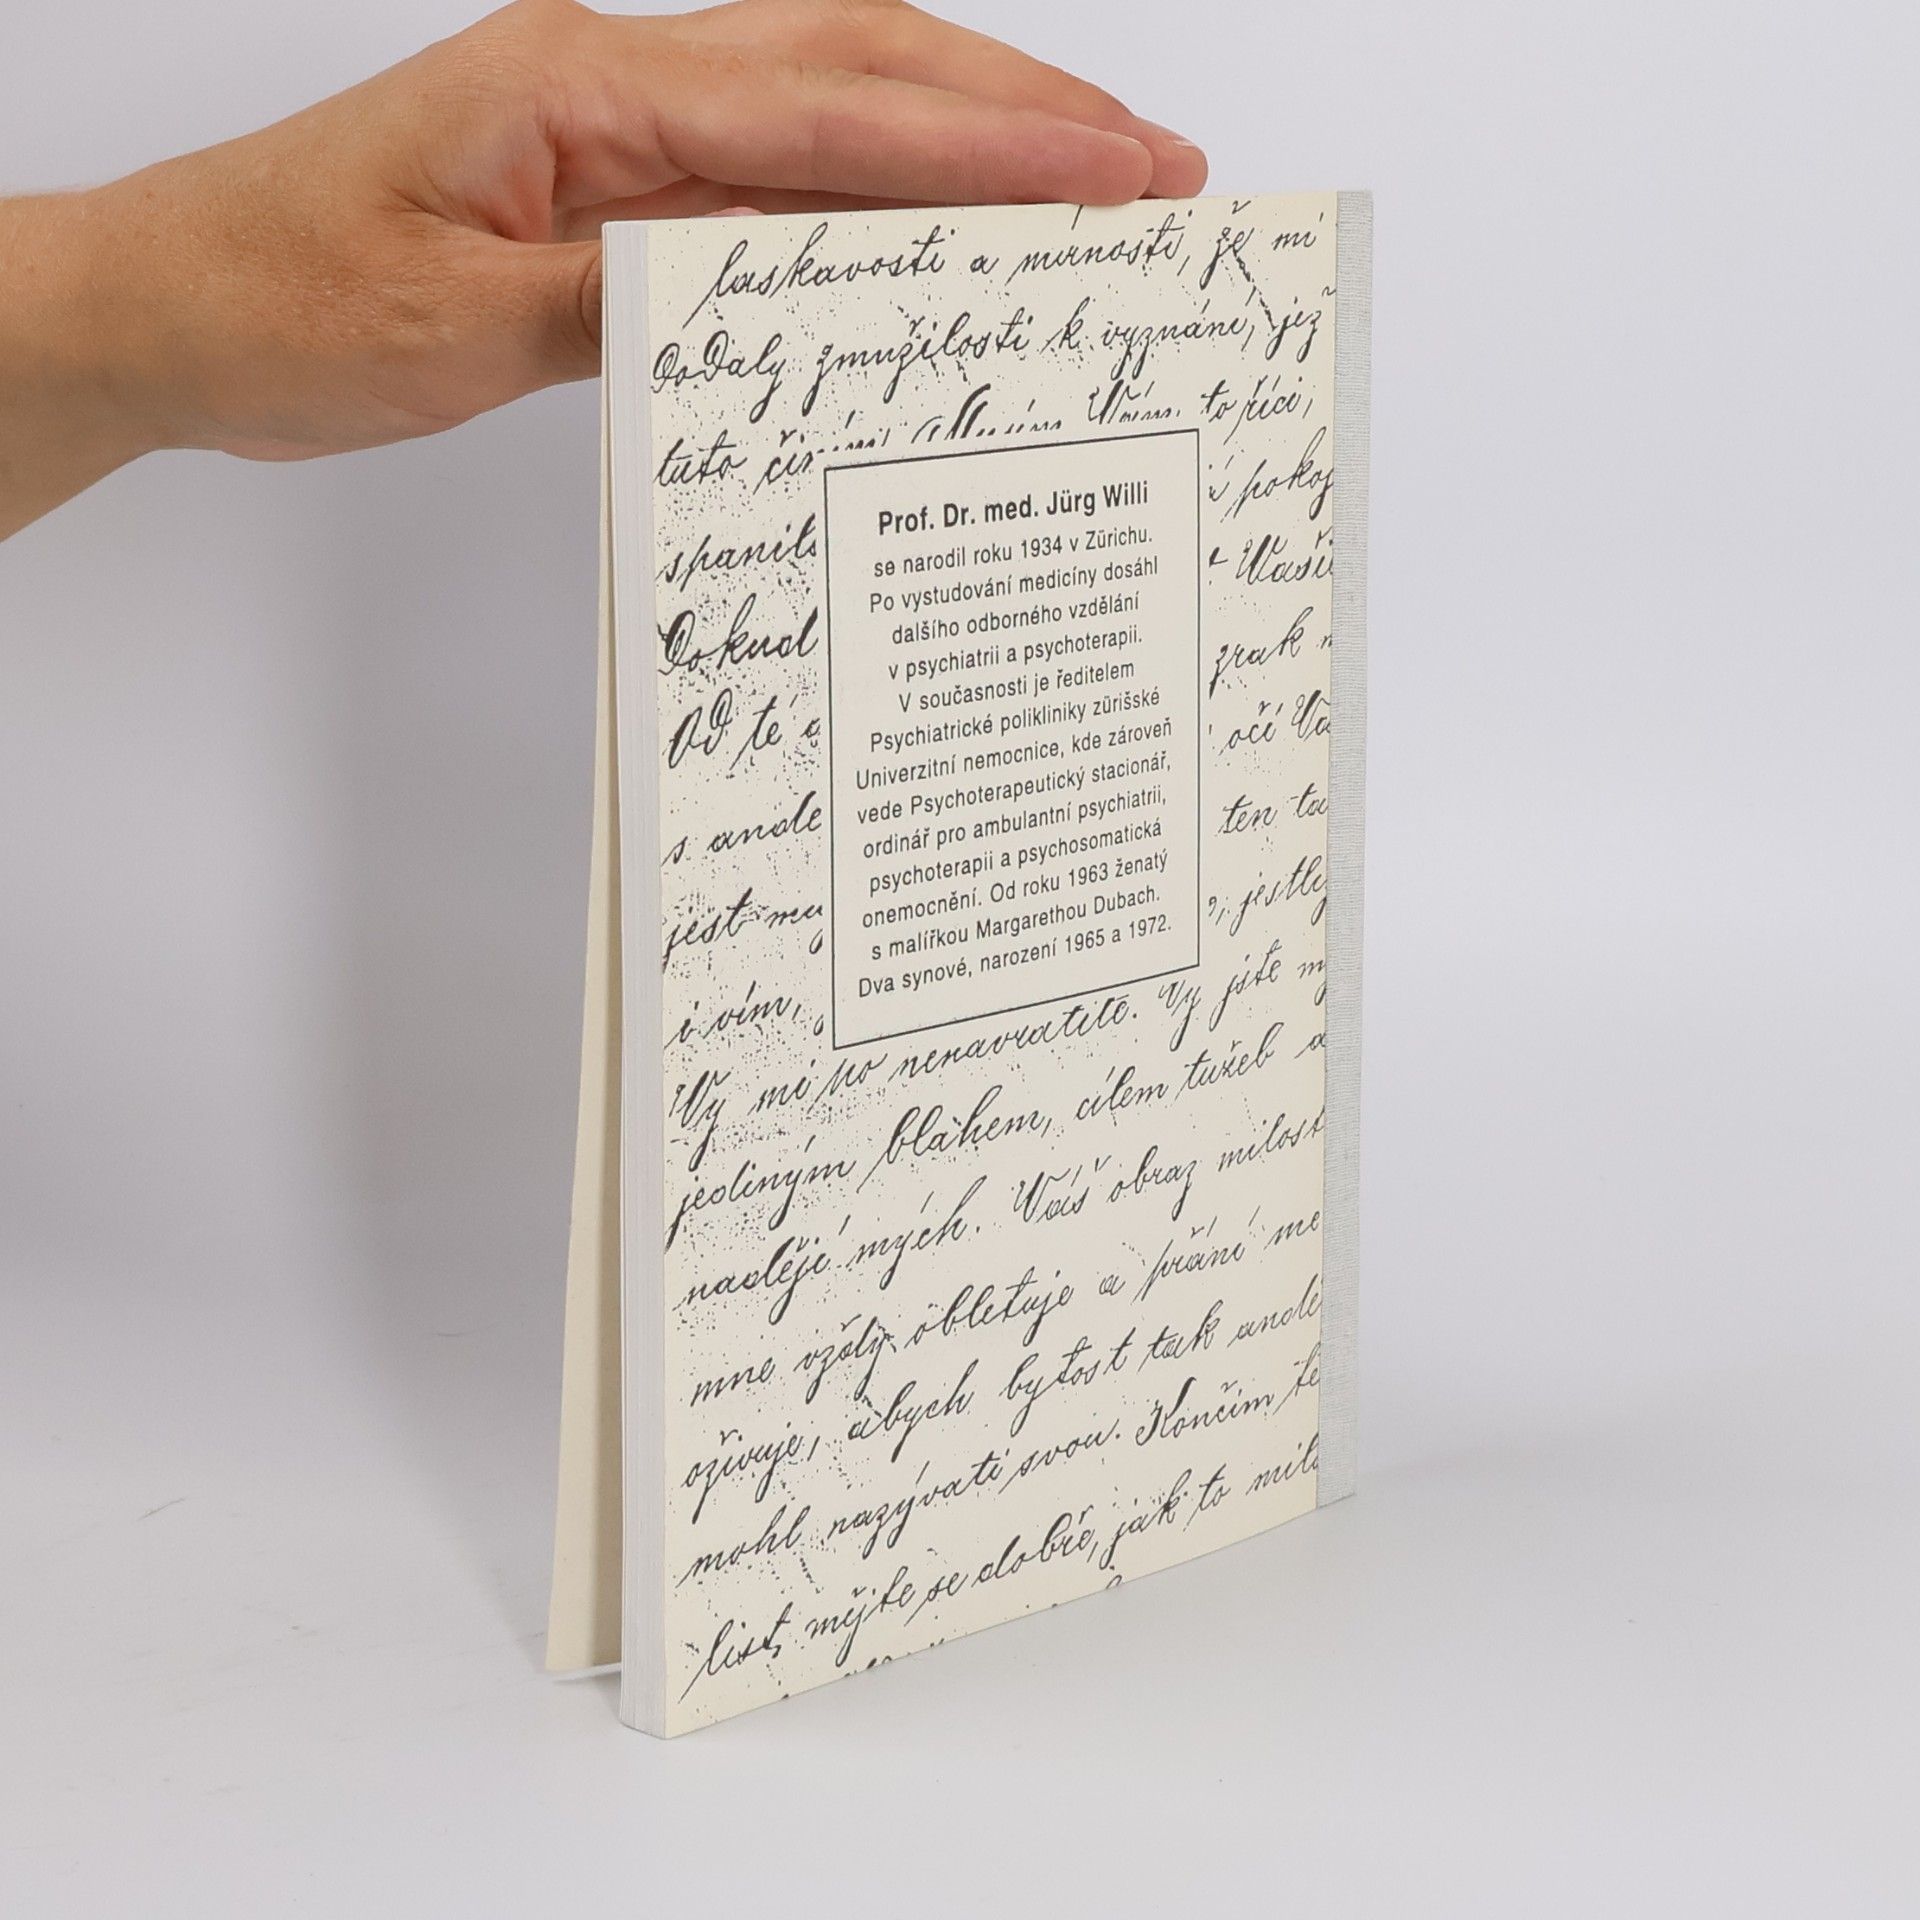 laskavosti a mírnosti, že mi
dodaly zmužilosti k vyznání, jež
tuto to říci,
pokoj
Prof. Dr. med. Jürg Willi
se narodil roku 1934 v Zürichu.
Po vystudování medicíny dosáhl
dalšího odborného vzdělání
v psychiatrii a psychoterapii.
V současnosti je ředitelem
Psychiatrické polikliniky zürišské
Univerzitní nemocnice, kde zároveň
vede Psychoterapeutický stacionář,
ordinář pro ambulantní psychiatrii,
psychoterapii a psychosomatická
onemocnění. Od roku 1963 ženatý
s malířkou Margarethou Dubach.
Dva synové, narození 1965 a 1972.
spanilo
Dokud zrak
Od té očí
s ande ten ta
jest jestli
i vím, Vy jste
Vy mi ho nenavrátíte.
jediným blahem, cílem tužeb a
nadějí mých. Váš obraz milost
mne vždy obletuje a přání me
oživuje, abych bytost tak anděl
mohl nazývati svou. Končím te
list, mějte se dobře, jak to mil